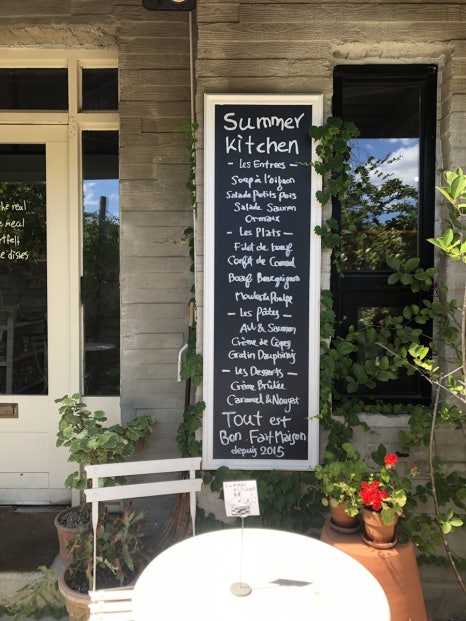 Summer
Kitchen
- Les Entrees -
Soup à l'oignon
Salade Petits Pois
Salade Saumon
Ormaux
- Les Plats -
Filet de bœuf
Confit de Canard
Bœuf Bourguignon
Moules de Poulpe
- Les Pâtes -
Ail & Saumon
Crème de Cèpes
Gratin Dauphinois
- Les Desserts -
Crème Brûlée
Caramel & Nougat
Tout est
Bon. Fait Maison
depuis 2015
the real
meal
dishes
Summer Kitchen